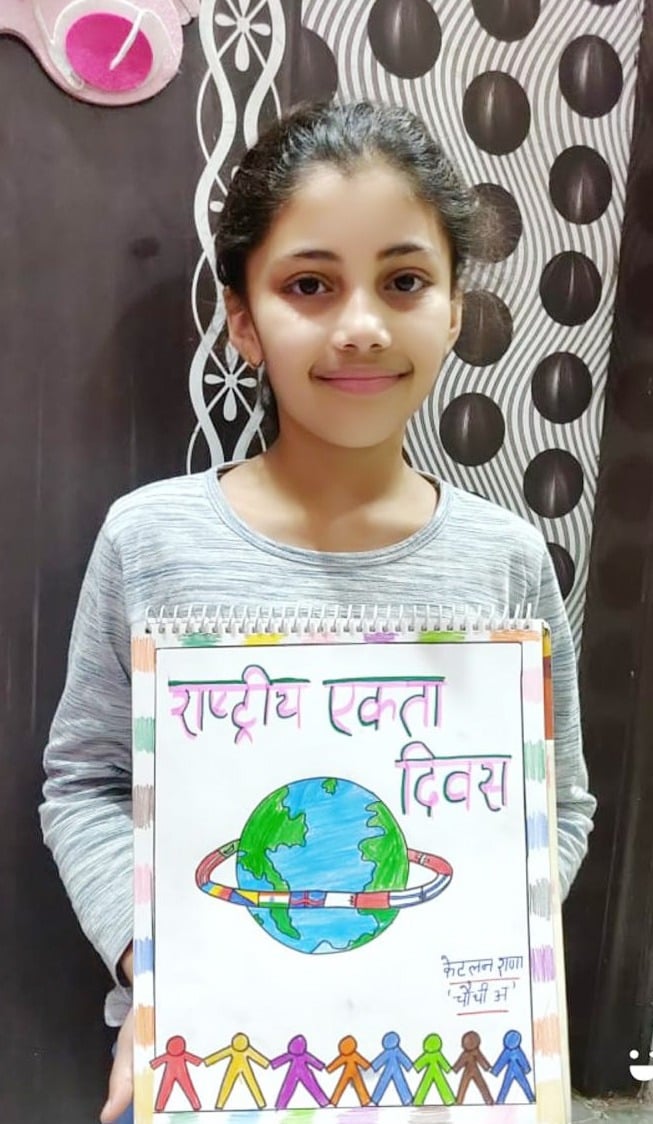 राष्ट्रीय एकता
दिवस
केटलन राणा
'चौथी अ'